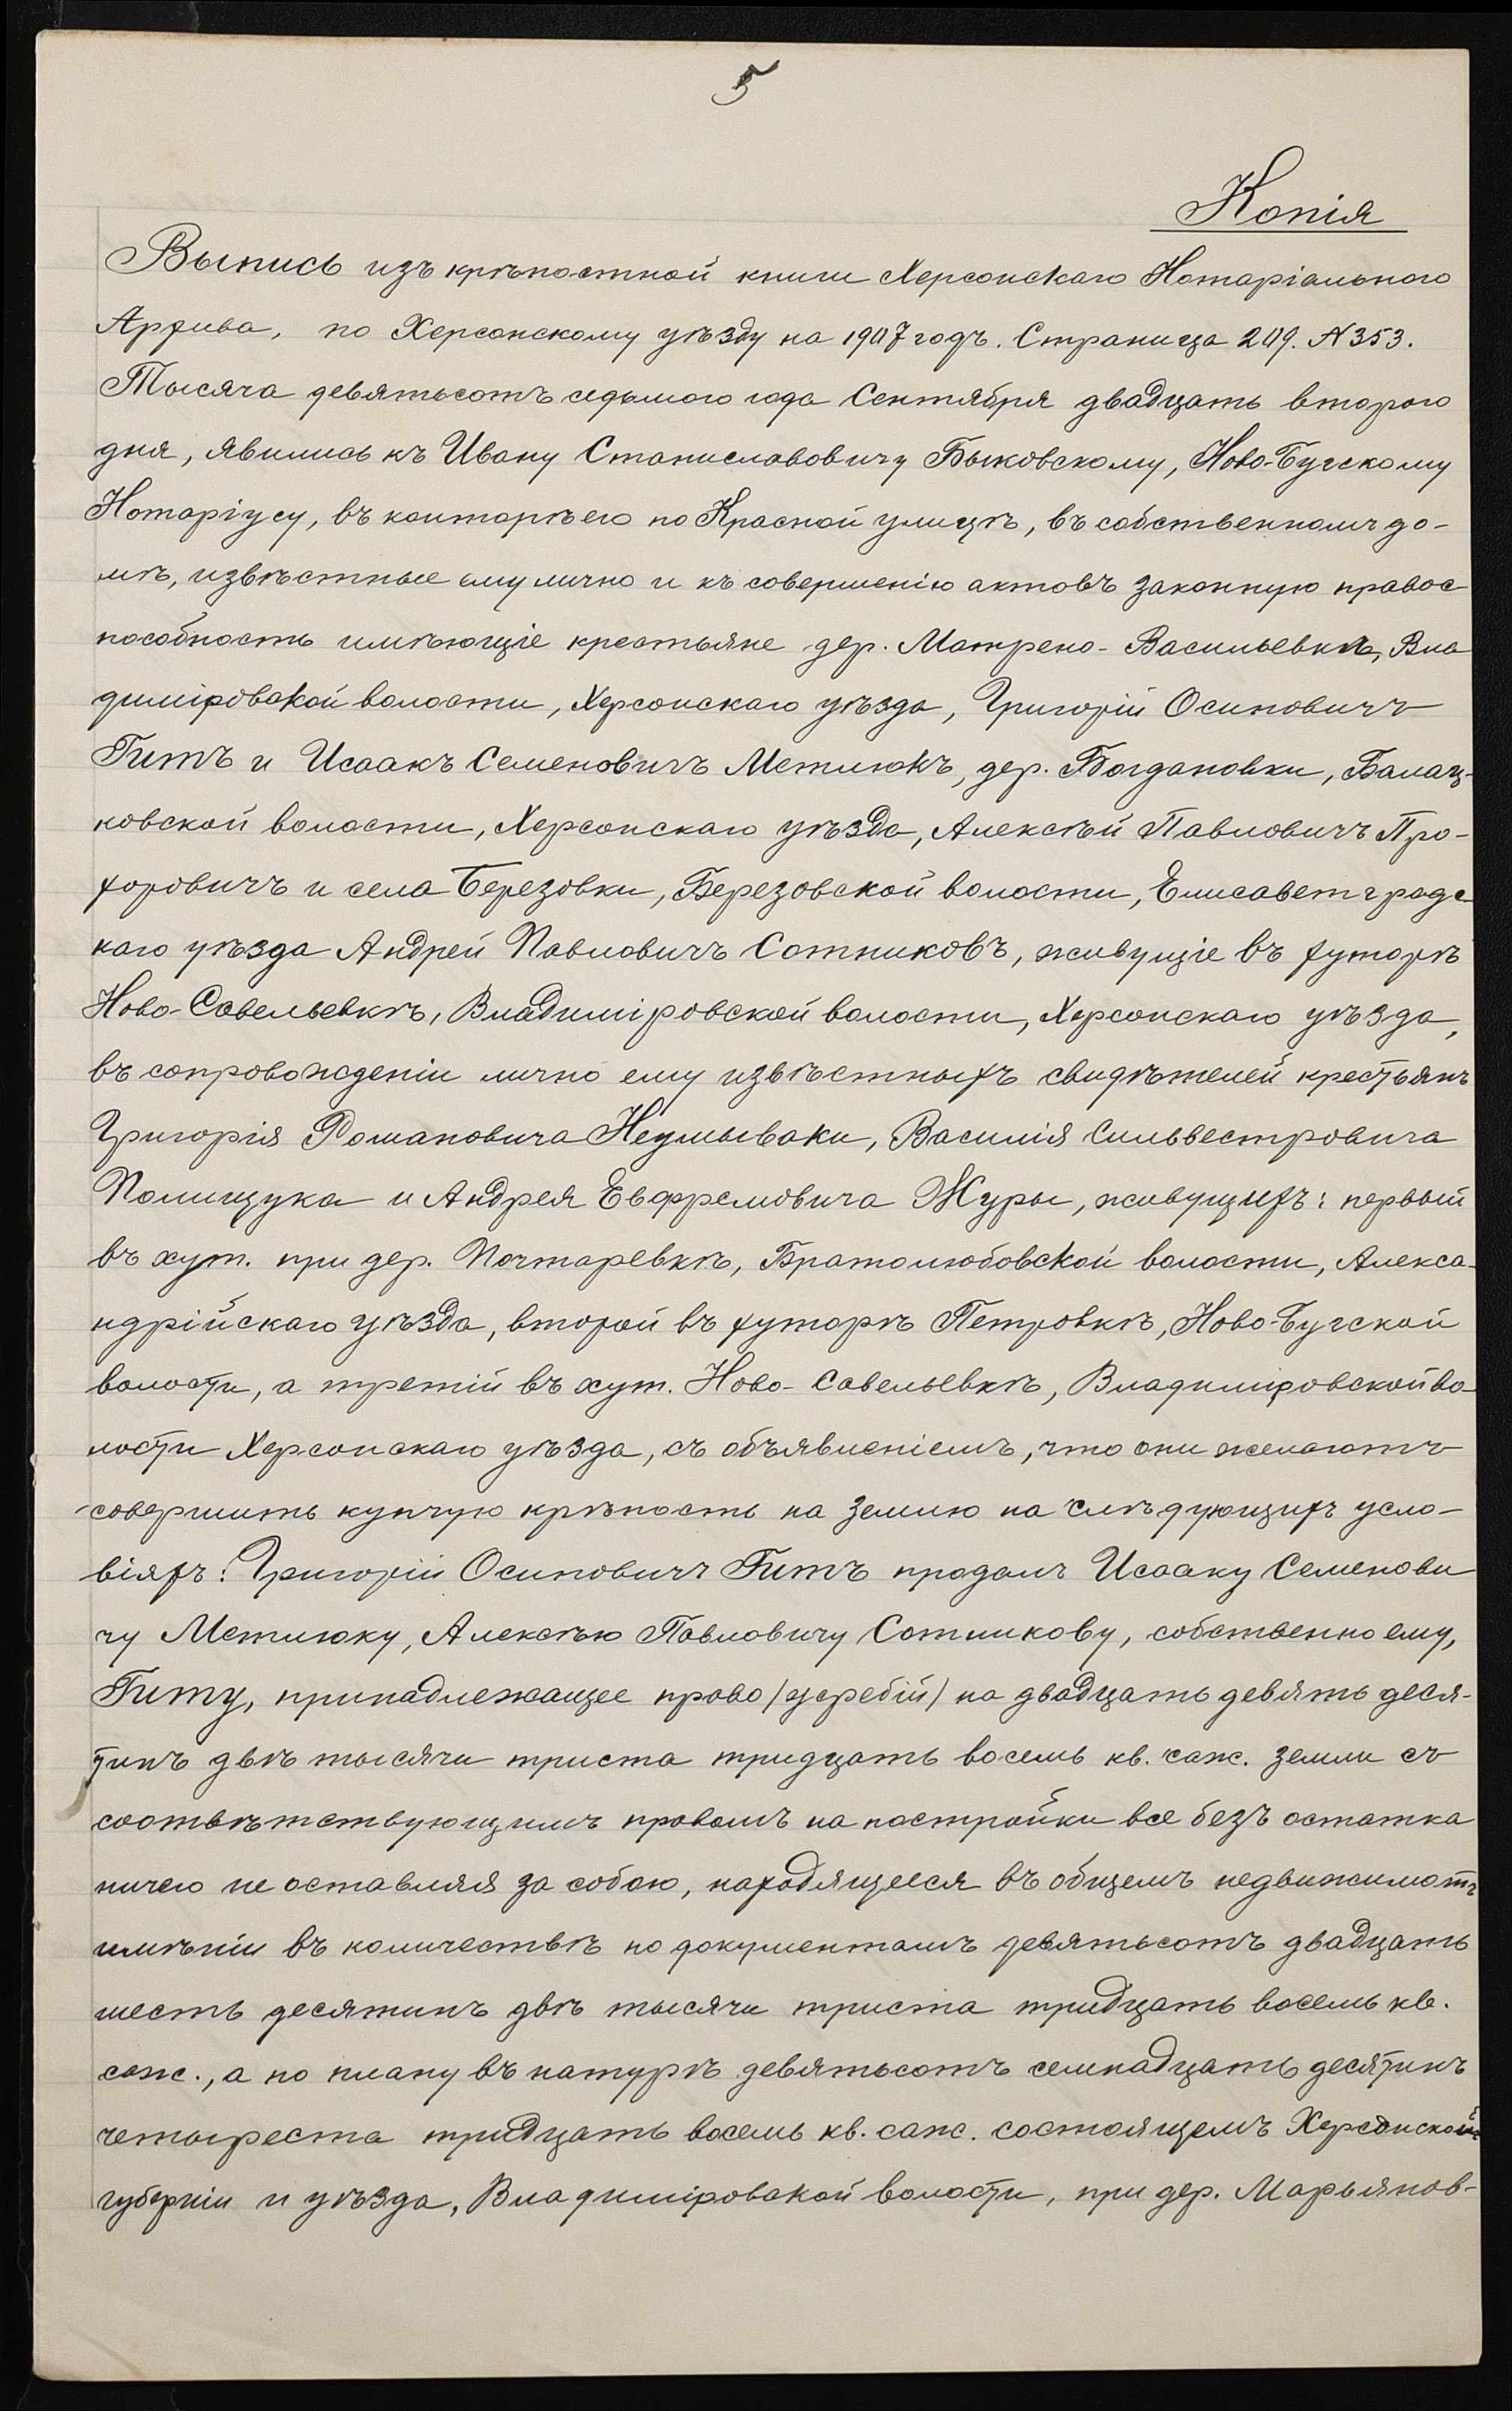 5
Копія
Выпись изъ крѣпостной книги Херсонскаго Нотаріальнаго
Архива, по Херсонскому уѣзду на 1907 годъ. Страница 209. N 353.
Тысяча девятьсотъ седьмого года Сентября двадцать второго
дня, явились къ Ивану Станиславовичу Быковскому, Ново-Бугскому
Нотаріусу, въ конторѣ его по Красной улицѣ, въ собственномъ до-
мѣ, извѣстные ему лично и къ совершенію актовъ законную правос
пособность имѣющіе крестьяне дер. Матрено-Васильевки, Вла
диміровской волости, Херсонскаго уѣзда, Григорій Осиповичъ
Гитъ и Исаакъ Семеновичъ Метлюкъ, дер. Богдановки, Балац-
ковской волости, Херсонскаго уѣзда, Алексѣй Павловичъ Про-
хоровичъ и села Березовки, Березовской волости, Елисаветградс
каго уѣзда Андрей Павловичъ Сотниковъ, живущіе въ хуторѣ
Ново-Савельевкѣ, Владиміровской волости, Херсонскаго уѣзда,
въ сопровожденіи лично ему извѣстныхъ свидѣтелей крестьянъ
Григорія Романовича Неумываки, Василія Сильвестровича
Полищука и Андрея Евфремовича Журы, живущихъ: первый
въ хут. при дер. Почтаревкѣ, Братолюбовской волости, Алекса-
ндрійскаго уѣзда, второй въ хуторѣ Петровкѣ, Ново-Бугской
волости, а третій въ хут. Ново-Савельевкѣ, Владиміровской во
лости Херсонскаго уѣзда, съ объявленіемъ, что они желаютъ
совершить купчую крѣпость на землю на слѣдующихъ усло-
віяхъ: Григорій Осиповичъ Гитъ продалъ Исааку Семенови
чу Метлюку, Алексѣю Павловичу Сотникову, собственно ему,
Гиту, принадлежащее право /жребій/ на двадцать девять деся-
тинъ двѣ тысячи триста тридцать восемь кв. саж. земли съ
соотвѣтствующимъ правомъ на постройки все безъ остатка
ничего не оставляя за собою, находящееся въ общемъ недвижимомъ
имѣніи въ количествѣ по документамъ девятьсотъ двадцать
шесть десятинъ двѣ тысячи триста тридцать восемь кв.
саж., а по плану въ натурѣ девятьсотъ семнадцать десятинъ
четыреста тридцать восемь кв. саж. состоящемъ Херсонской
губерніи и уѣзда, Владиміровской волости, при дер. Марьянов-